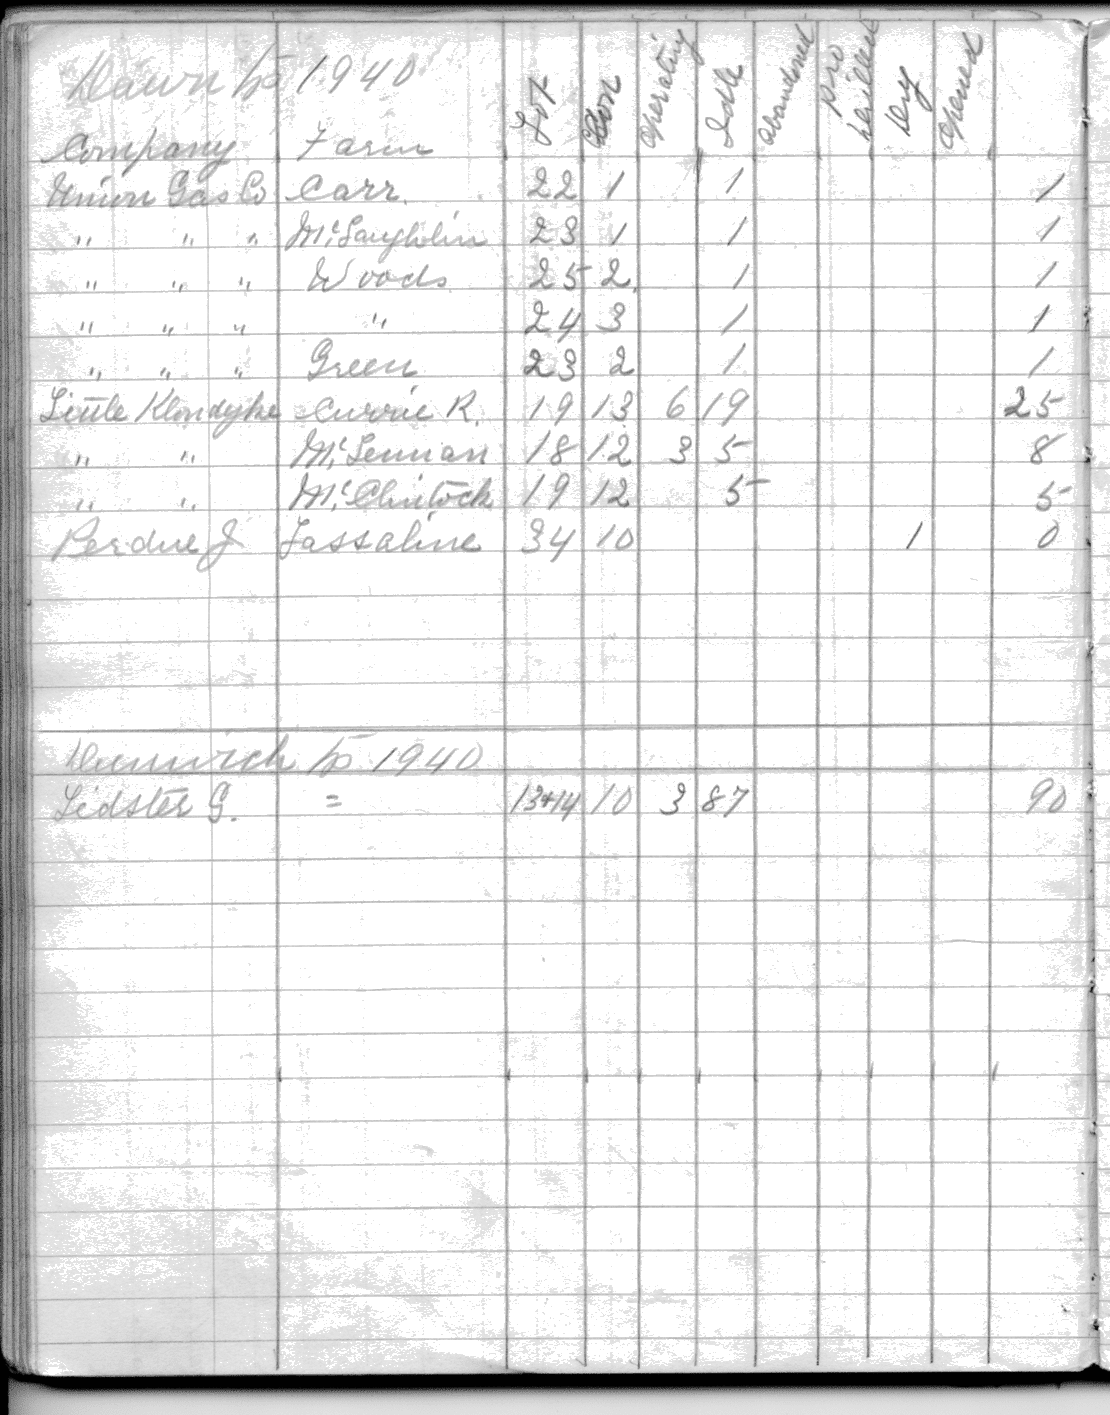 Dawn Tp 1940
Company Farm Lot Con Operating Idle Abandoned Pro Drilled Dry Opened
Union Gas Co Carr. 22 1 1 1
" " " McLaughlin 23 1 1 1
" " " Woods 25 2. 1 1
" " " " 24 3 1 1
" " " Green 23 2 1 1
Little Klondyke Currie R. 19 13 6 19 25
" " McLennan 18 12 3 5 8
" " McClintock 19 12 5 5
Perdue J Lassaline 34 10 1 0
Dunwich Tp 1940
Lidster G. = 13+14 10 3 87 90